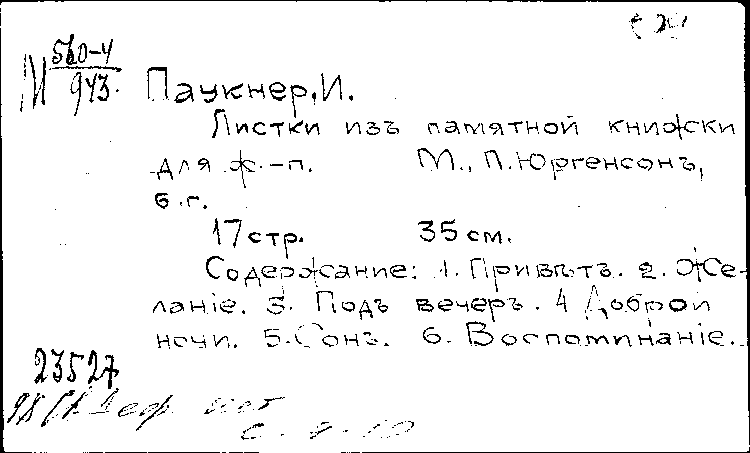 М 560-4
943.
Паукнер, И.
Листки изъ памятной книжки
для ф.-п. М., П. Юргенсонъ,
б.г.
17 стр. 35 см.
Содержание: 1. Привѣтъ. 2. Же-
ланіе. 3. Подъ вечеръ. 4 Доброй
ночи. 5. Сонъ. 6. Воспоминаніе.
23527